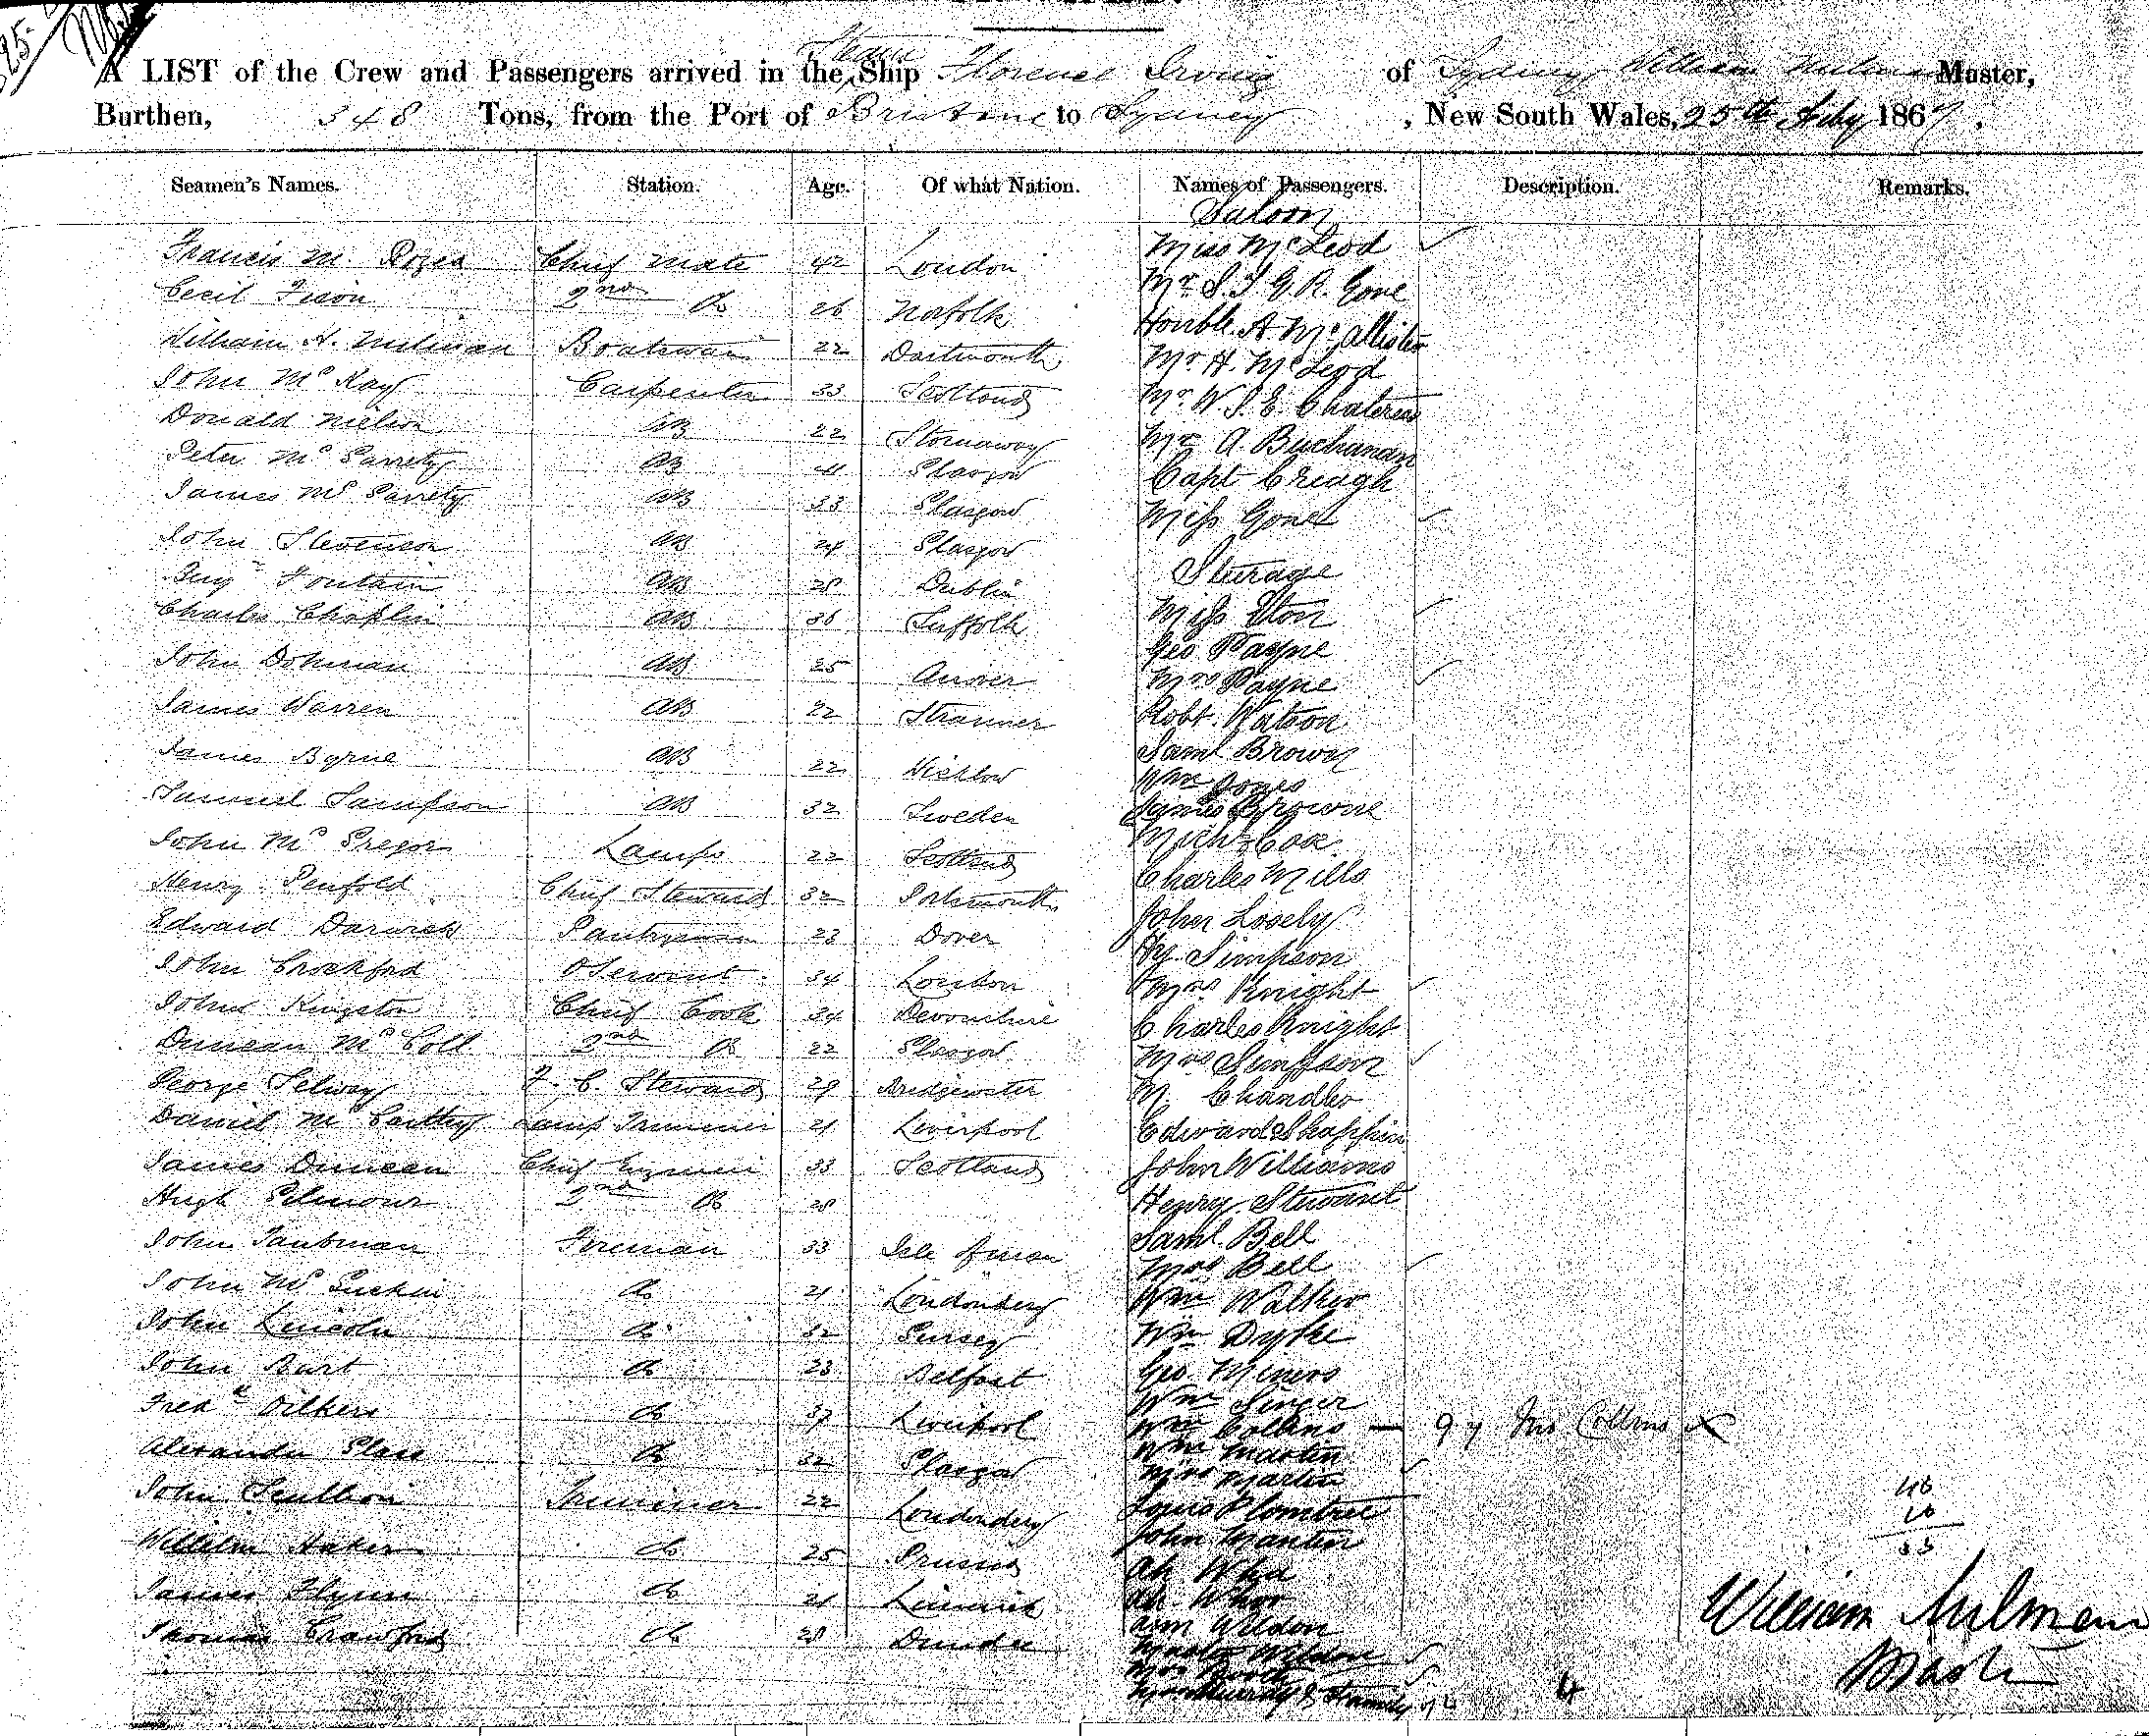 A LIST of the Crew and Passengers arrived in the Steam Ship Florence Irving of Sydney, William Milman Master,
Burthen, 348 Tons, from the Port of Brisbane to Sydney, New South Wales, 25th Feby 1867.
Seamen's Names. Station. Age. Of what Nation. Names of Passengers. Description. Remarks.
Saloon
Francis M. Chief Mate 42 London Miss McLeod ✓
Cecil Fison 2nd do 26 Norfolk Mr S. J. G. R. Gone
William H. Milman Boatswain 22 Dartmouth Honble. A McAllister
John McKay Carpenter 33 Scotland Mr H. McLeod
Donald Nielson AB 22 Stornaway Mr W. J. E.
Peter McGarrety AB 41 Glasgow Mr A. Buchanan
James McGarrety AB 33 Glasgow Capt Creagh
John Stevenson AB 24 Glasgow Miss Gone ✓
Fountain AB 28 Dublin Steerage
Charles Chaplin AB 36 Suffolk Miss ✓
John Dohman AB 25 Geo Payne
Mrs Payne ✓
James Warren AB 22 Stranraer Robt. Watson
James Byrne AB 22 Wicklow Saml Brown
Wm Jones
Samuel Sampson AB 32 Sweden James Browne
John McGregor Lamps 22 Scotland Michl Cox
Henry Penfold Chief Steward 32 Portsmouth Charles Mills
Edward Pantryman 23 Dover John Lovely
John Crockford Servant 34 London Hy. Simpson
Mrs Knight ✓
John Kingston Chief Cook 34 Devonshire Charles Knight
Duncan McColl 2nd do 22 Glasgow Mrs Simpson ✓
George Selway F. C. Steward 29 Bridgewater M. Chandler
Daniel McCarthy Lamp Trimmer 21 Liverpool Edward
James Duncan Chief Engineer 33 Scotland John Williams
Hugh Gilmour 2nd do 28 Henry Stewart
John Taubman Fireman 33 Isle of Man Saml. Bell
Mrs Bell ✓
John do 21 Londonderry Wm Walker
John Lincoln do 32 Wm Dyke
John Burt do 23 Belfast Geo.
Wm Singer
Fredk Dilkers do 37 Liverpool Wm Collins — Jno Collins X
Wm Martin
Alexander Glass do 32 Glasgow Mrs Martin ✓
John Scullion Trimmer 22 Londonderry Louis Plomtree
John Mantin
do 25 Prussia Ah
James Flynn do 21 Limerick Ah
Wm Weldon
Thomas Crawford do 28 Dundee Master Weldon ✓
Mrs ✓
Mrs Murray & Family of 4 4
William Milman
Master